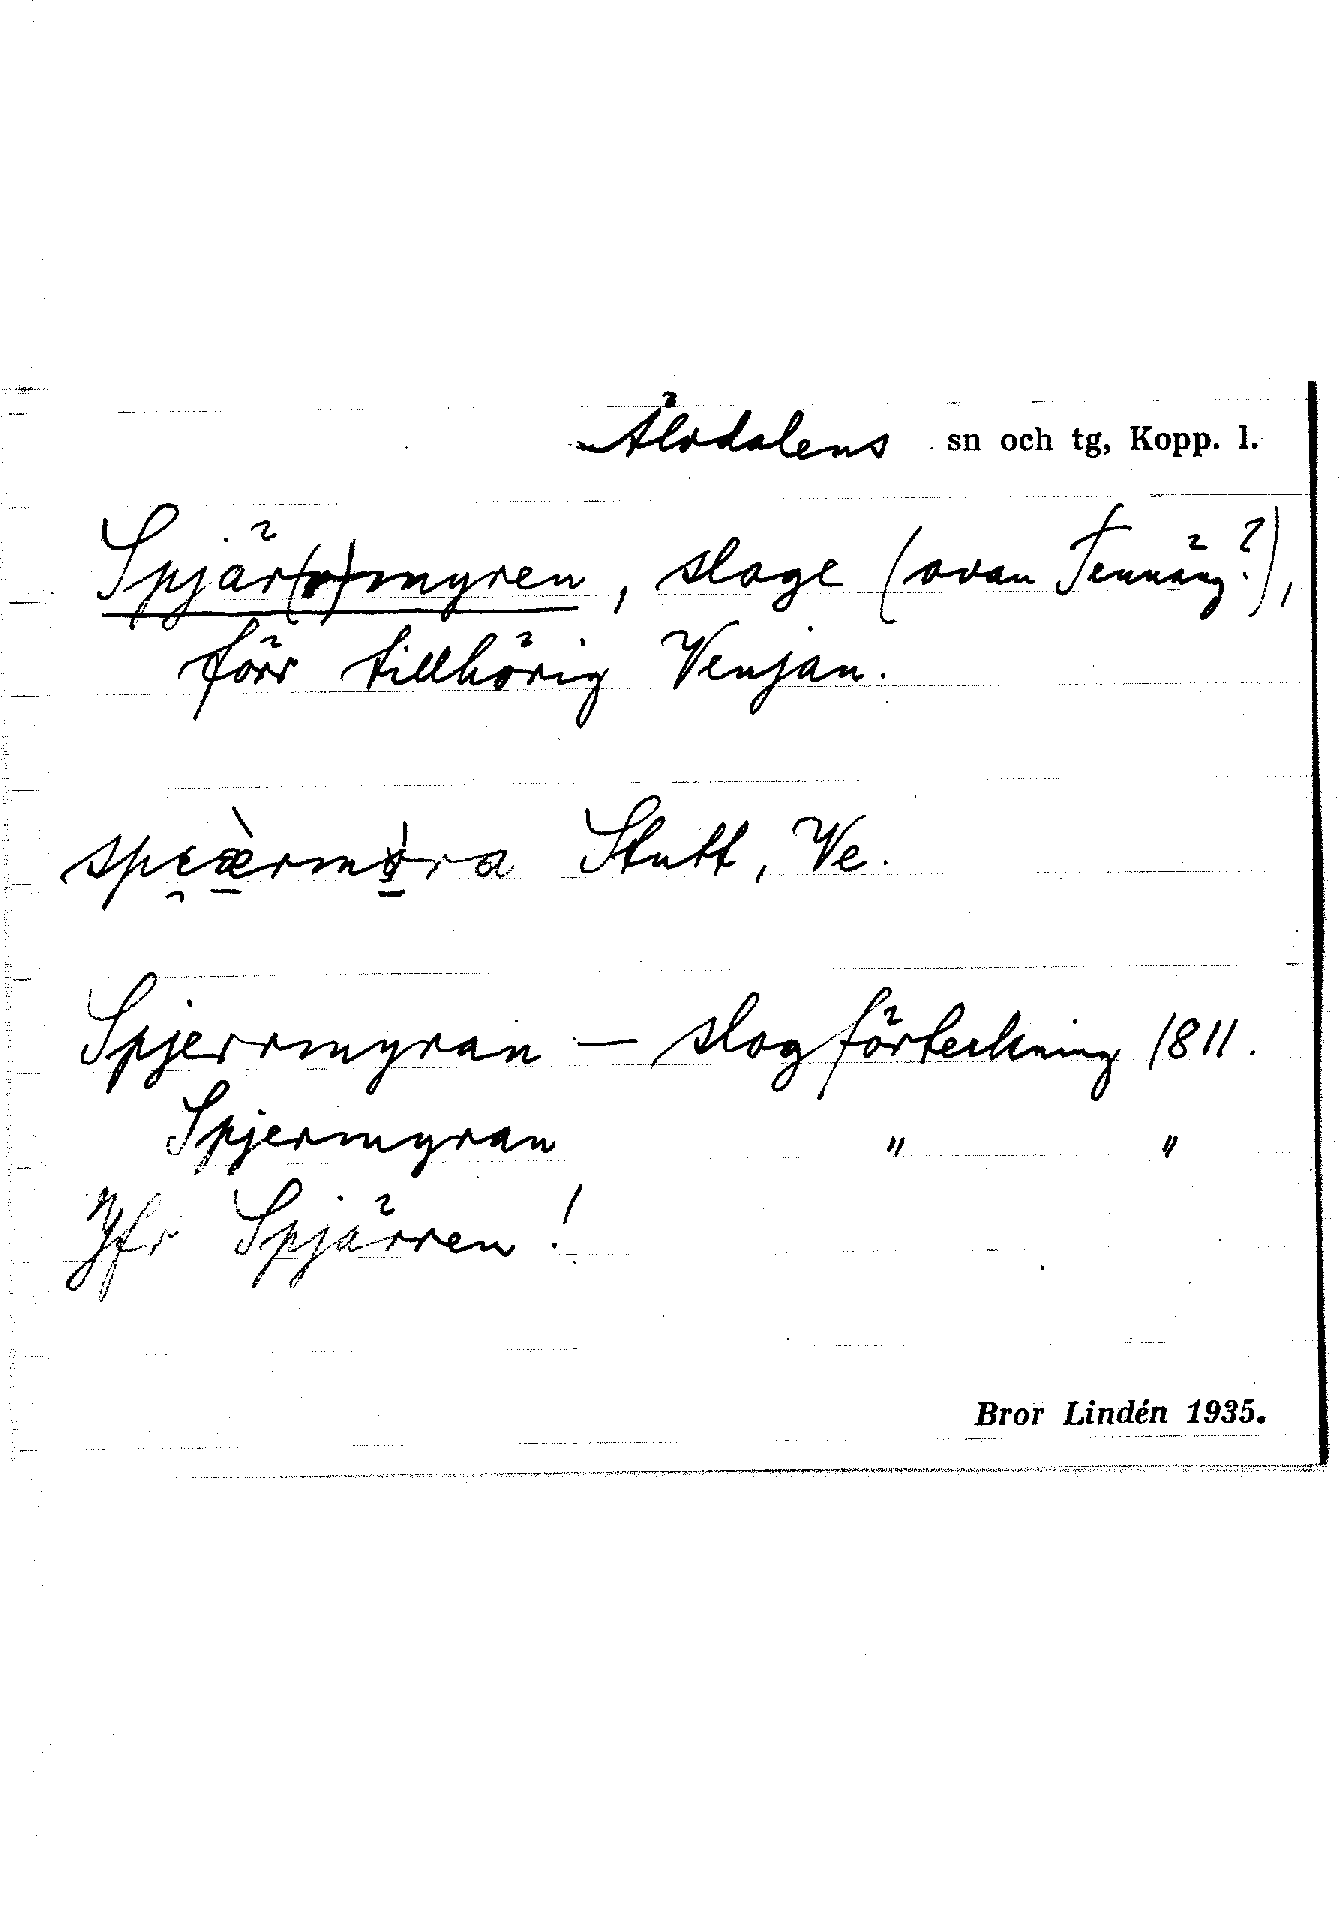 Älvdalens sn och tg, Kopp. l.
Spjär(r)myren, sloge (ovan Tennäng?),
förr tillhörig Venjan.
Stutt, Ve.
Spjerrmyran — slogförteckning 1811.
Spjermyran " "
Jfr Spjärren!
Bror Lindén 1935.